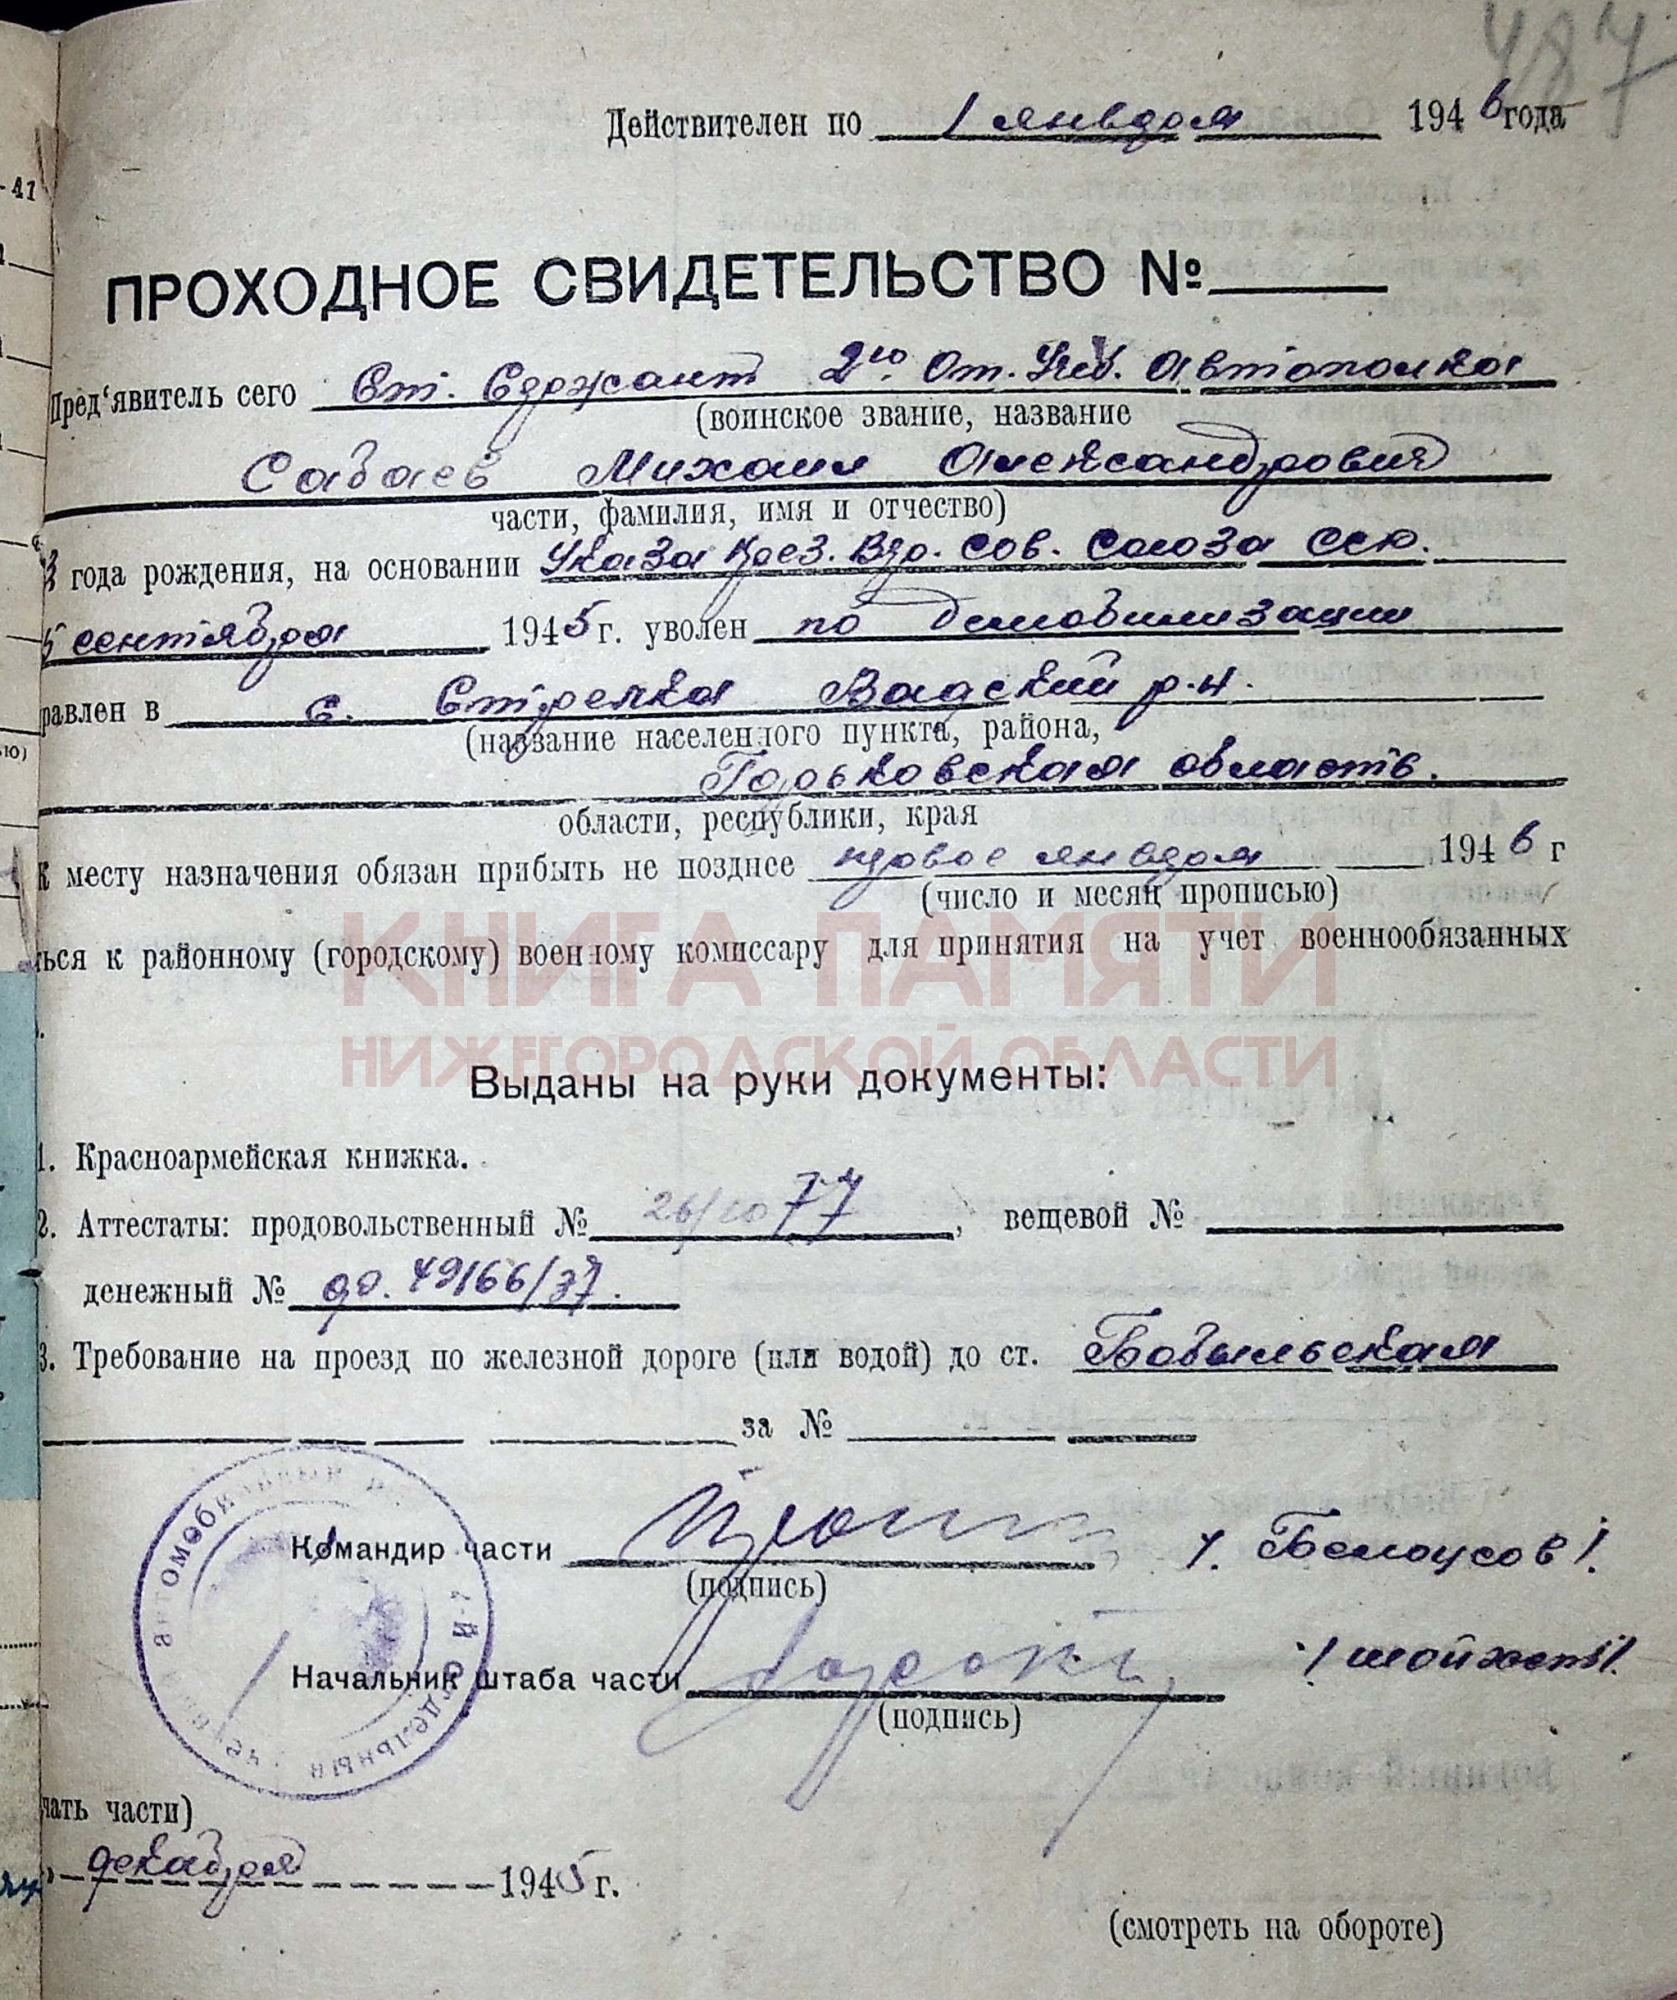 487
Действителен по 1 января 1946 года
-41
ПРОХОДНОЕ СВИДЕТЕЛЬСТВО №
Пред'явитель сего Ст. Сержант 2го От. Уч. Автополка
(воинское звание, название
Сабаев Михаил Александрович
части, фамилия, имя и отчество)
3 года рождения, на основании Указа През. Вер. Сов. Союза ССР.
5 сентября 1945 г. уволен по демобилизации
равлен в с. Стрелка Вадский р-н.
(название населенного пункта, района,
Горьковская область.
области, республики, края
К месту назначения обязан прибыть не позднее первое января 1946 г
(число и месяц прописью)
ться к районному (городскому) военному комиссару для принятия на учет военнообязанных
КНИГА ПАМЯТИ
НИЖЕГОРОДСКОЙ ОБЛАСТИ
Выданы на руки документы:
1. Красноармейская книжка.
2. Аттестаты: продовольственный № 77, вещевой №
денежный № 49166/37.
3. Требование на проезд по железной дороге (или водой) до ст. Бобыльская
за №
Командир части / Белоусов /.
(подпись)
Начальник штаба части
(подпись)
автомобильный й отдельный
чать части)
» декабря 1945 г.
(смотреть на обороте)